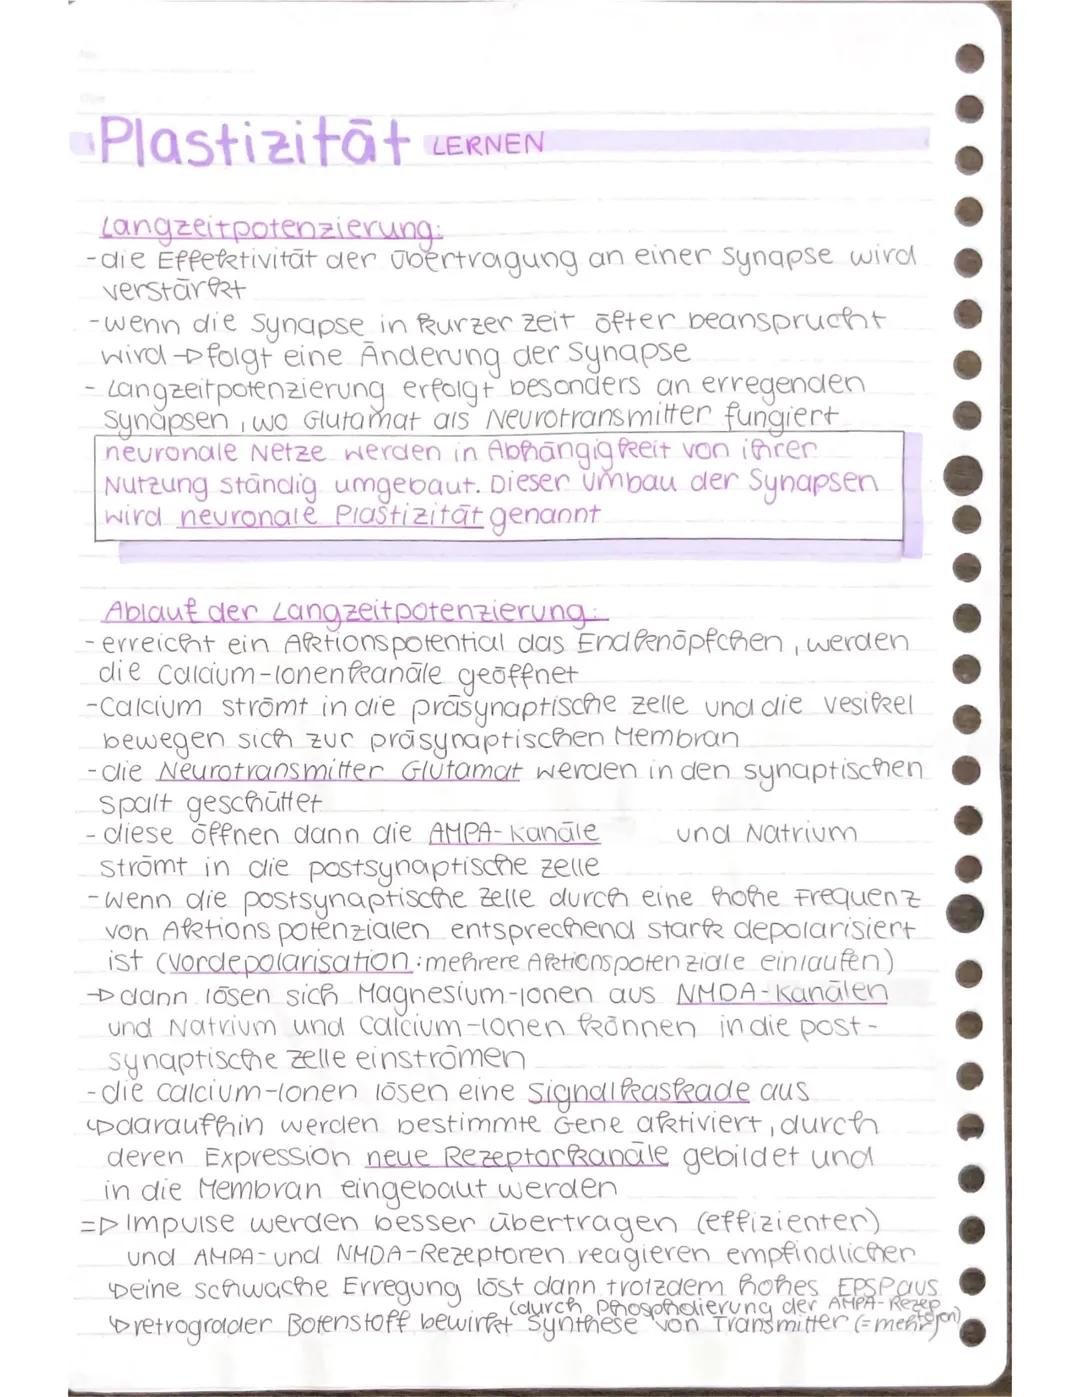 Plastizität LERNEN
Langzeitpotenzierung:
-die Effektivität der Übertragung an einer Synapse wird
verstärkt
-wenn die Synapse in kurzer Zeit öfter beansprucht
wird → folgt eine Änderung der Synapse
- Langzeitpotenzierung erfolgt besonders an erregenden
Synapsen, wo Glutamat als Neurotransmitter fungiert
neuronale Netze werden in Abhängigkeit von ihrer
Nutzung ständig umgebaut. Dieser Umbau der Synapsen
wird neuronale Plastizität genannt
Ablauf der Langzeitpotenzierung:
- erreicht ein Aktionspotential das Endknöpfchen, werden
die Calcium-Ionenkanäle geöffnet
-Calcium strömt in die präsynaptische Zelle und die Vesikel
bewegen sich zur präsynaptischen Membran
-die Neurotransmitter Glutamat werden in den synaptischen
Spalt geschüttet
- diese öffnen dann die AMPA-Kanäle und Natrium
strömt in die postsynaptische Zelle
-wenn die postsynaptische Zelle durch eine hohe Frequenz
von Aktionspotenzialen entsprechend stark depolarisiert
ist (Vordepolarisation: mehrere Aktionspotenziale einlaufen)
→ dann lösen sich Magnesium-Ionen aus NMDA-Kanälen
und Natrium und Calicium-Ionen können in die post-
synaptische Zelle einströmen
-die Calcium-Ionen lösen eine Signalkaskade aus
↳ daraufhin werden bestimmte Gene aktiviert, durch
deren Expression neue Rezeptorkanäle gebildet und
in die Membran eingebaut werden
=> Impulse werden besser übertragen (effizienter)
und AMPA- und NMDA-Rezeptoren reagieren empfindlicher
↳ eine schwache Erregung löst dann trotzdem hohes EPSP aus
(durch Phospholierung der AMPA-Rezeptoren)
↳ retrograder Botenstoff bewirkt Synthese von Transmitter (= mehr)